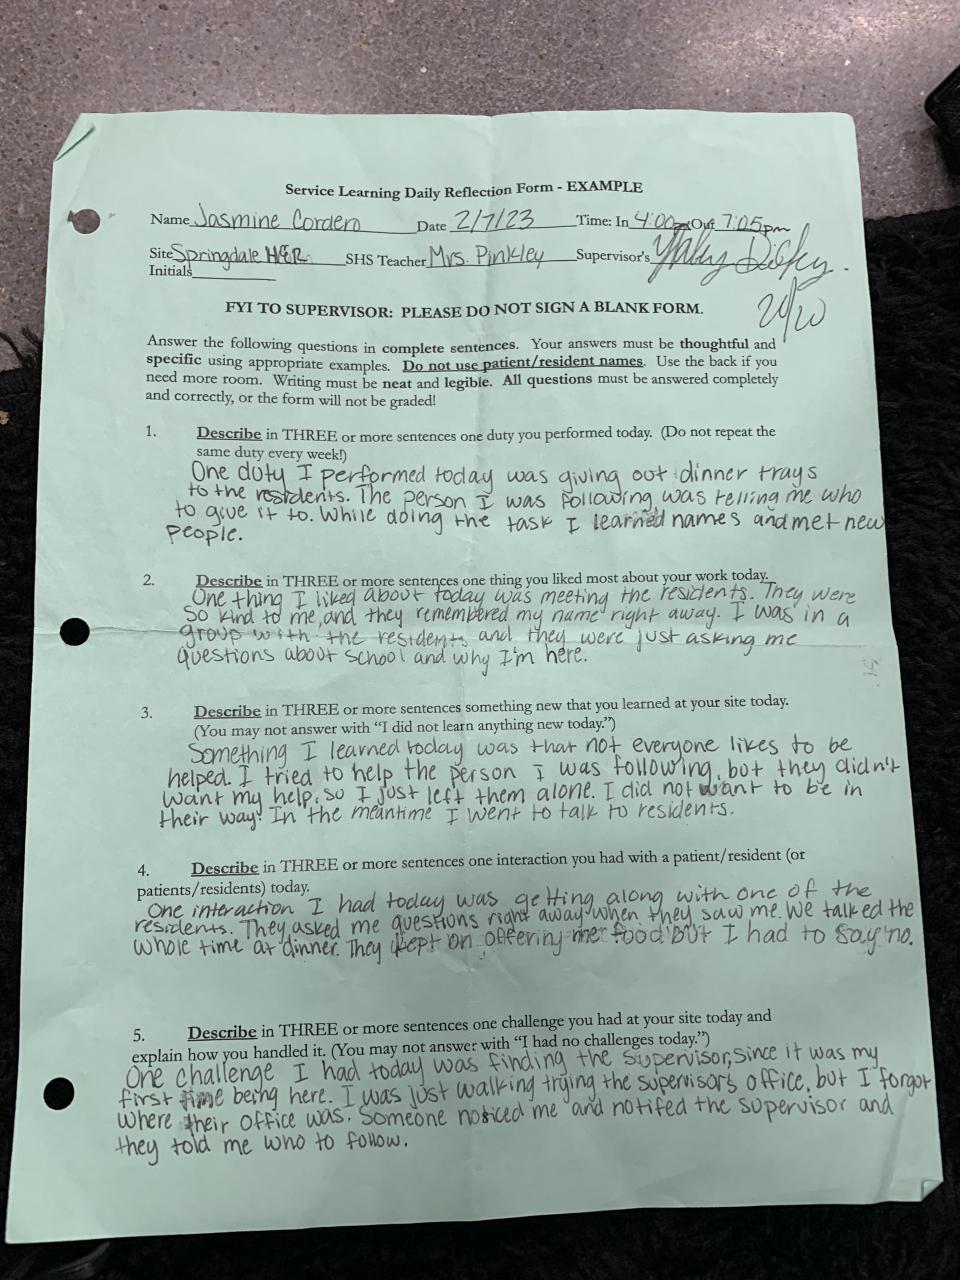 Service Learning Daily Reflection Form - EXAMPLE
Name Jasmine Cordero Date 2/7/23 Time: In 4:00pm Out 7:05pm
Site Springdale H&R SHS Teacher Mrs. Pinkley Supervisor's
Initials
20/20
FYI TO SUPERVISOR: PLEASE DO NOT SIGN A BLANK FORM.
Answer the following questions in complete sentences. Your answers must be thoughtful and
specific using appropriate examples. Do not use patient/resident names. Use the back if you
need more room. Writing must be neat and legible. All questions must be answered completely
and correctly, or the form will not be graded!
1. Describe in THREE or more sentences one duty you performed today. (Do not repeat the
same duty every week!)
One duty I performed today was giving out dinner trays
to the residents. The person I was following was telling me who
to give it to. While doing the task I learned names and met new
people.
2. Describe in THREE or more sentences one thing you liked most about your work today.
One thing I liked about today was meeting the residents. They were
so kind to me, and they remembered my name right away. I was in a
group with the residents and they were just asking me
questions about school and why I'm here.
3. Describe in THREE or more sentences something new that you learned at your site today.
(You may not answer with "I did not learn anything new today.")
Something I learned today was that not everyone likes to be
helped. I tried to help the person I was following, but they didn't
want my help, so I just left them alone. I did not want to be in
their way. In the meantime I went to talk to residents.
4. Describe in THREE or more sentences one interaction you had with a patient/resident (or
patients/residents) today.
One interaction I had today was getting along with one of the
residents. They asked me questions right away when they saw me. We talked the
whole time at dinner. They kept on offering me food but I had to say no.
5. Describe in THREE or more sentences one challenge you had at your site today and
explain how you handled it. (You may not answer with "I had no challenges today.")
One challenge I had today was finding the supervisor, since it was my
first time being here. I was just walking trying the supervisor's office, but I forgot
where their office was. Someone noticed me and notifed the supervisor and
they told me who to follow.